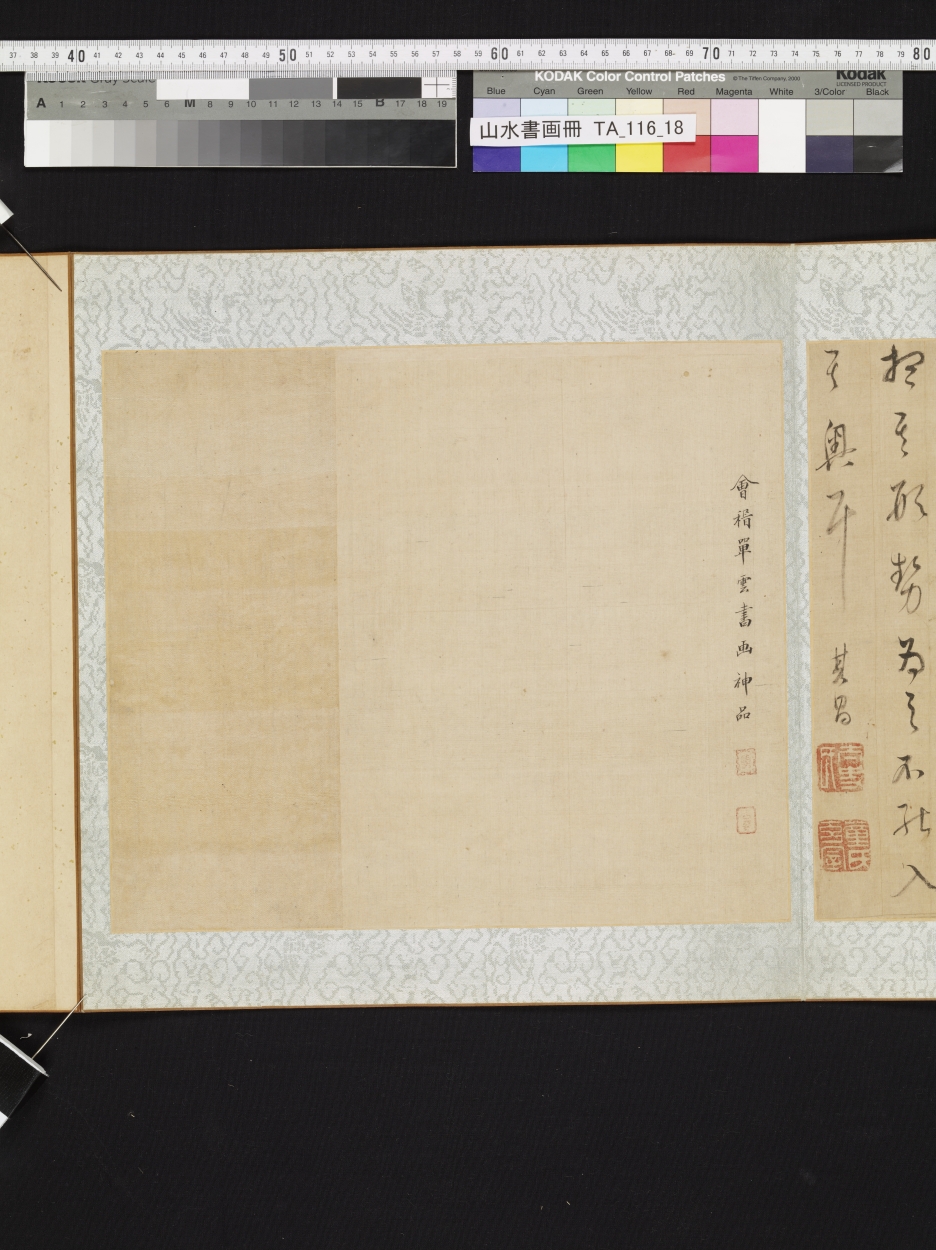 37 38 39 40 41 42 43 44 45 46 47 48 49 50 51 52 53 54 55 56 57 58 59 60 61 62 63 64 65 66 67 68 69 70 71 72 73 74 75 76 77 78 79 80
A 1 2 3 4 5 6 M 8 9 10 11 12 13 14 15 B 17 18 19
KODAK Color Control Patches © The Tiffen Company, 2000 Kodak
LICENSED PRODUCT
Blue Cyan Green Yellow Red Magenta White 3/Color Black
山水書画冊 TA_116_18
其形勢為之不能入
其奧耳
其昌
會稽單雲書画神品